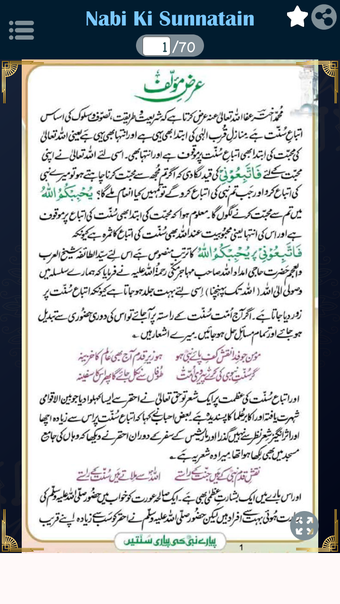 Nabi Ki Sunnatain
1 /70
عرضِ مؤلف
محمد اختر عفا اللہ تعالیٰ عنہ عرض کرتا ہے کہ شریعت و طریقت، تصوف و سلوک کی اساس
اتباعِ سنت ہے۔ منازلِ قربِ الٰہی کی ابتدا بھی یہی ہے اور انتہا بھی یہی ہے یعنی اللہ تعالیٰ
کی محبت کی ابتدا بھی اتباعِ سنت پر موقوف ہے اور انتہا بھی۔ اسی لئے اللہ تعالیٰ نے اپنی
محبت کے لئے فَاتَّبِعُوْنِیْ کی قید لگا دی کہ اگر تم مجھ سے محبت کرنا چاہتے ہو تو میرے نبی
کی اتباع کرو اور جب تم نبی کی اتباع کرو گے تو تمہیں کیا انعام ملے گا؟ یُحْبِبْکُمُ اللّٰهُ
میں تم سے محبت کرنے لگوں گا۔ معلوم ہوا کہ محبت کی ابتدا بھی سنت کی اتباع پر موقوف
ہے اور اس کی انتہا یعنی محبوبیت عند اللہ بھی سنت کی اتباع کا ثمرہ ہے کیونکہ
فَاتَّبِعُوْنِیْ پر یُحْبِبْکُمُ اللّٰهُ کا ترتب منصوص ہے اس لئے سید الطائفہ شیخ العرب
والعجم حضرت حاجی امداد اللہ صاحب مہاجر مکی رحمۃ اللہ علیہ نے فرمایا کہ ہمارے سلسلہ میں
وصول الی اللہ (اللہ تک پہنچنا) اسی لئے بہت جلد ہو جاتا ہے کیونکہ اتباعِ سنت پر
زور دیا جاتا ہے۔ اگر آج امت سنت کے راستہ پر آ جائے تو اس کی دوری حضوری سے تبدیل
ہو جائے اور تمام مسائل حل ہو جائیں۔ میرے اشعار ہیں۔
مؤمن جو فدا نقشِ کفِ پائے نبی ہو
ہو زیرِ قدم آج بھی عالم کا خزینہ
گر سنتِ نبوی کی کرے پیروی امت
طوفاں سے نکل جائے گا پھر اس کا سفینہ
اور اتباعِ سنت کی عظمت پر ایک شعر حق تعالیٰ نے احقر سے ایسا کہلوا دیا جو بین الاقوامی
شہرت یافتہ اور اکابر علماء کا پسندیدہ ہے۔ بعض احباب نے کہا کہ اتباعِ سنت پر اس سے زیادہ اچھا
اور اثر انگیز شعر نظر سے نہیں گذرا اور ماریشس کے سفر کے دوران احقر نے دیکھا کہ وہاں کی جامع
مسجد میں بھی لکھا ہوا تھا۔ میرا وہ شعر یہ ہے۔
نقشِ قدم نبی کے ہیں جنت کے راستے
اللہ سے ملاتے ہیں سنت کے راستے
اور اس بارے میں ایک بشارتِ عظمیٰ بھی ہے۔ ایک صالحہ عورت کو خواب میں حضور صلی اللہ علیہ وسلم کی
ہوئی بہت سے افراد ہیں لیکن حضور صلی اللہ علیہ وسلم نے احقر کو سب سے زیادہ اپنے قریب
پیارے نبی کی پیاری سنتیں
1